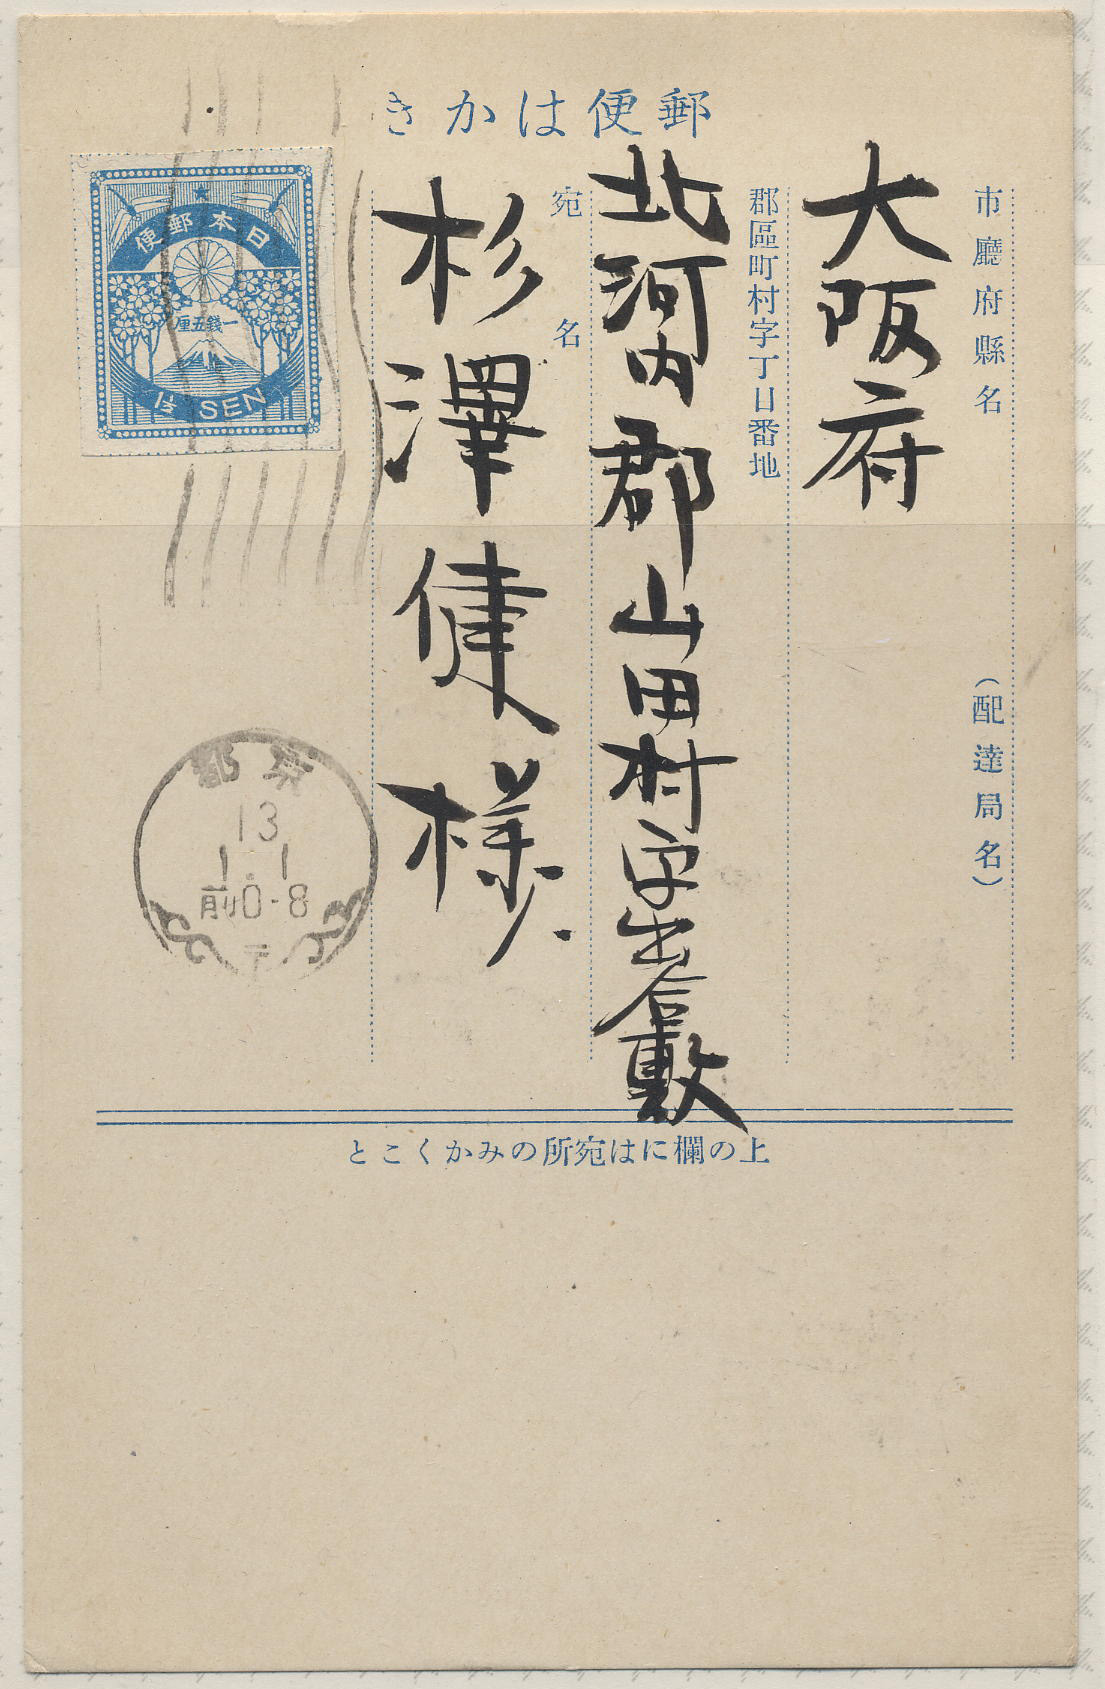 郵便はかき
市廳府縣名
（配達局名）
大阪府
郡區町村字丁目番地
北河内郡山田村字出合敷
宛名
杉澤健様
日本郵便
一銭五厘
1½ SEN
京都
13
1.1
前0-8
上の欄には宛所のみかくこと